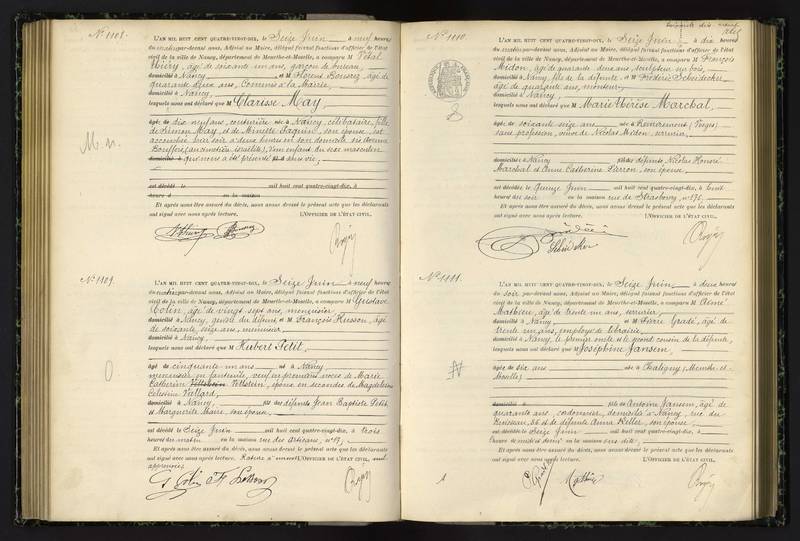 N° 1108.
L'AN MIL HUIT CENT QUATRE-VINGT-DIX, le Seize Juin à neuf heures
du matin par-devant nous, Adjoint au Maire, délégué faisant fonctions d'officier de l'état
civil de la ville de Nancy, département de Meurthe-et-Moselle, a comparu M Vital
Thiéry, âgé de soixante un ans, garçon de bureau,
domicilié à Nancy et M Florent Rousrez, âgé de
quarante deux ans, Commis à la Mairie,
domicilié à Nancy,
lesquels nous ont déclaré que M Clarisse May,
âgée de dix neuf ans, couturière née à Nancy, célibataire, fille
de Simon May, et de Minette son épouse, est
accouchée hier soir à deux heures en son domicile rue
(ancien israélite), d'un enfant du sexe masculin
domicilié à qui nous a été présenté sans vie,
est décédé le mil huit cent quatre-vingt-dix, à
heure d en la maison
Et après nous être assuré du décès, nous avons dressé le présent acte que les déclarants
ont signé avec nous après lecture. L'OFFICIER DE L'ÉTAT CIVIL,
M. n.
N° 1109.
L'AN MIL HUIT CENT QUATRE-VINGT-DIX, le Seize Juin à neuf heures
du matin par-devant nous, Adjoint au Maire, délégué faisant fonctions d'officier de l'état
civil de la ville de Nancy, département de Meurthe-et-Moselle, a comparu M Gustave
Colin, âgé de vingt sept ans, menuisier,
domicilié à Nancy, gendre du défunt et M François Husson, âgé
de soixante seize ans, menuisier,
domicilié à Nancy,
lesquels nous ont déclaré que M Hubert Petit,
âgé de cinquante un ans né à Nancy,
menuisier en fauteuils, veuf en premières noces de Marie
Catherine Vettstein, époux en secondes de Magdeleine
Célestine Viellard,
domicilié à Nancy, fils des défunts Jean Baptiste Petit
et Marguerite Maire, son épouse
est décédé le Seize Juin mil huit cent quatre-vingt-dix, à trois
heures du matin en la maison rue des Artisans, n° 17,
Et après nous être assuré du décès, nous avons dressé le présent acte que les déclarants
ont signé avec nous après lecture. L'OFFICIER DE L'ÉTAT CIVIL,
G. Colin
N° 1110.
L'AN MIL HUIT CENT QUATRE-VINGT-DIX, le Seize Juin à dix heures
du matin par-devant nous, Adjoint au Maire, délégué faisant fonctions d'officier de l'état
civil de la ville de Nancy, département de Meurthe-et-Moselle, a comparu M François
Midon, âgé de quarante deux ans, sculpteur sur bois,
domicilié à Nancy, fils de la défunte et M Frédéric Scheidecker,
âgé de quarante ans, monteur,
domicilié à Nancy,
lesquels nous ont déclaré que M Marie Thérèse Marchal,
âgée de soixante seize ans née à Remiremont (Vosges)
sans profession, veuve de Nicolas Midon, serrurier,
domiciliée à Nancy fille des défunts Nicolas Honoré
Marchal et Anne Catherine Pierron, son épouse,
est décédée le Quinze Juin mil huit cent quatre-vingt-dix, à huit
heures du soir en la maison rue de Strasbourg, n° 176,
Et après nous être assuré du décès, nous avons dressé le présent acte que les déclarants
ont signé avec nous après lecture. L'OFFICIER DE L'ÉTAT CIVIL,
N° 1111.
L'AN MIL HUIT CENT QUATRE-VINGT-DIX, le Seize Juin à deux heures
du soir par-devant nous, Adjoint au Maire, délégué faisant fonctions d'officier de l'état
civil de la ville de Nancy, département de Meurthe-et-Moselle, a comparu M Aimé
Mathieu, âgé de trente un ans, serrurier,
domicilié à Nancy et M Pierre Gradé, âgé de
trente un ans, employé de librairie,
domicilié à Nancy, le premier oncle et le second cousin de la défunte,
lesquels nous ont déclaré que M Joséphine Jansem,
âgée de six ans née à Chaligny (Meurthe-et-
Moselle)
domicilié à fille de Antoine Jansem, âgé de
quarante ans, cordonnier, domicilié à Nancy, rue du
Ruisseau, 36, et de défunte Anna Keller, son épouse,
est décédée le Seize Juin mil huit cent quatre-vingt-dix, à
heures de midi et demi en la maison sus dite,
Et après nous être assuré du décès, nous avons dressé le présent acte que les déclarants
ont signé avec nous après lecture. L'OFFICIER DE L'ÉTAT CIVIL,
Mathieu